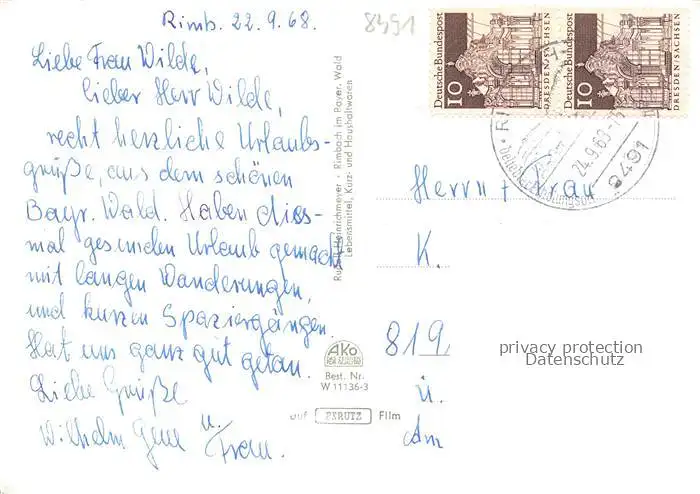 Rimb. 22.9.68.
8491
Liebe Frau Wilde,
lieber Herr Wilde,
recht herzliche Urlaubs-
grüße, aus dem schönen
Bayr. Wald. Haben dies-
mal gesunden Urlaub gemacht
mit langen Wanderungen,
und kurzen Spaziergängen.
Hat uns ganz gut getan.
Liebe Grüße
Wilhelm u.
Frau.
Heinrichmeyer · Rimbach im Bayer. Wald
Lebensmittel, Kurz- und Haushaltwaren
AKO
Best. Nr.
W 11136-3
auf PERUTZ Film
Deutsche Bundespost
10
DRESDEN/SACHSEN
Deutsche Bundespost
10
DRESDEN/SACHSEN
24.9.68
8491
Herrn + Frau
K.
819
ü.
Am
privacy protection
Datenschutz